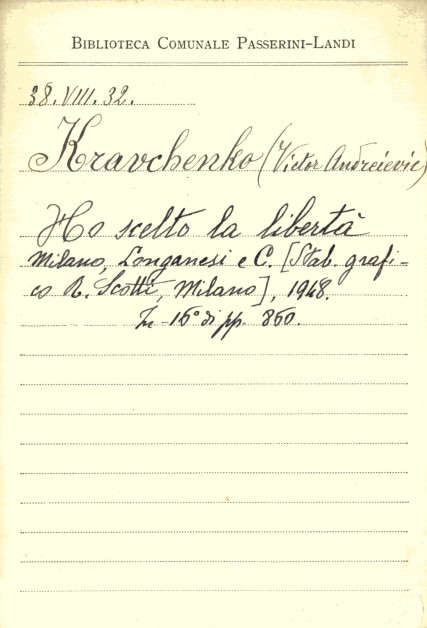 BIBLIOTECA COMUNALE PASSERINI-LANDI
38.VIII.32.
Kravchenko (Victor Andreievic)
Ho scelto la libertà
Milano, Longanesi e C. [Stab. grafi=
co R. Scotti, Milano], 1948.
In-16° di pp. 860.